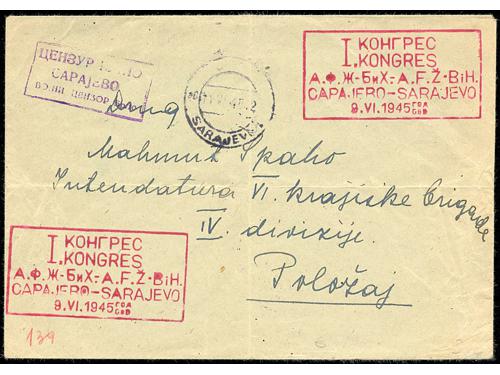 ЦЕНЗУРИСАНО
САРАЈЕВО
ВОЈНИ ЦЕНЗОР
SARAJEVO
I. КОНГРЕС
KONGRES
А.Ф.Ж-БиХ-A.F.Ž-BiH.
САРАЈЕВО-SARAJEVO
9.VI.1945 ГОД GOD
Drug
Mahmut Spaho
Intendatura VI. krajiske brigade
IV divizije.
Položaj
I. КОНГРЕС
KONGRES
А.Ф.Ж-БиХ-A.F.Ž-BiH.
САРАЈЕВО-SARAJEVO
9.VI.1945 ГОД GOD
139